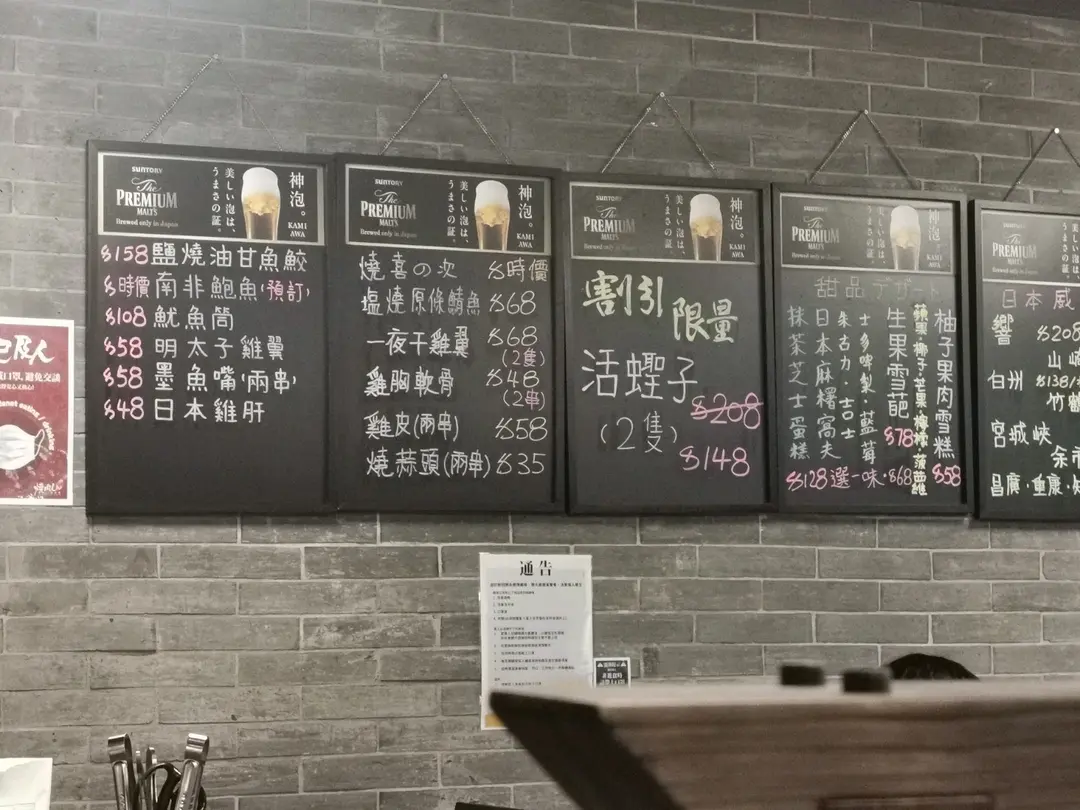 SUNTORY
The
PREMIUM
MALT'S
Brewed only in Japan
美しい泡は、
うまさの証。
神泡。
KAMI
AWA
$158鹽燒油甘魚鮫
$時價南非鮑魚(預訂)
$108魷魚筒
$58明太子雞翼
$58墨魚嘴(兩串)
$48日本雞肝
SUNTORY
The
PREMIUM
MALT'S
Brewed only in Japan
美しい泡は、
うまさの証。
神泡。
KAMI
AWA
燒喜の次 $時價
塩燒原條鯖魚 $68
一夜干雞翼 $68
(2隻)
雞胸軟骨 $48
(2串)
雞皮(兩串) $58
燒蒜頭(兩串) $35
SUNTORY
The
PREMIUM
MALT'S
Brewed only in Japan
美しい泡は、
うまさの証。
神泡。
KAMI
AWA
割引
限量
活蟶子
(2隻)
$208
$148
SUNTORY
The
PREMIUM
MALT'S
Brewed only in Japan
美しい泡は、
うまさの証。
神泡。
KAMI
AWA
甜品デザート
柚子果肉雪糕
$58
蘋果・椰子・芒果・檸檬・菠蘿
生果雪葩
$78
士多啤梨・藍莓
朱古力・
日本麻糬窩夫
選一味・$68
抹茶芝士蛋糕
$128
SUNTORY
The
PREMIUM
MALT'S
Brewed only in Japan
美しい泡は、
うまさの証。
日本威
響 $208
山崎
白州 $138
竹鶴
宮城峽
余市
昌廣・重康・知
通告